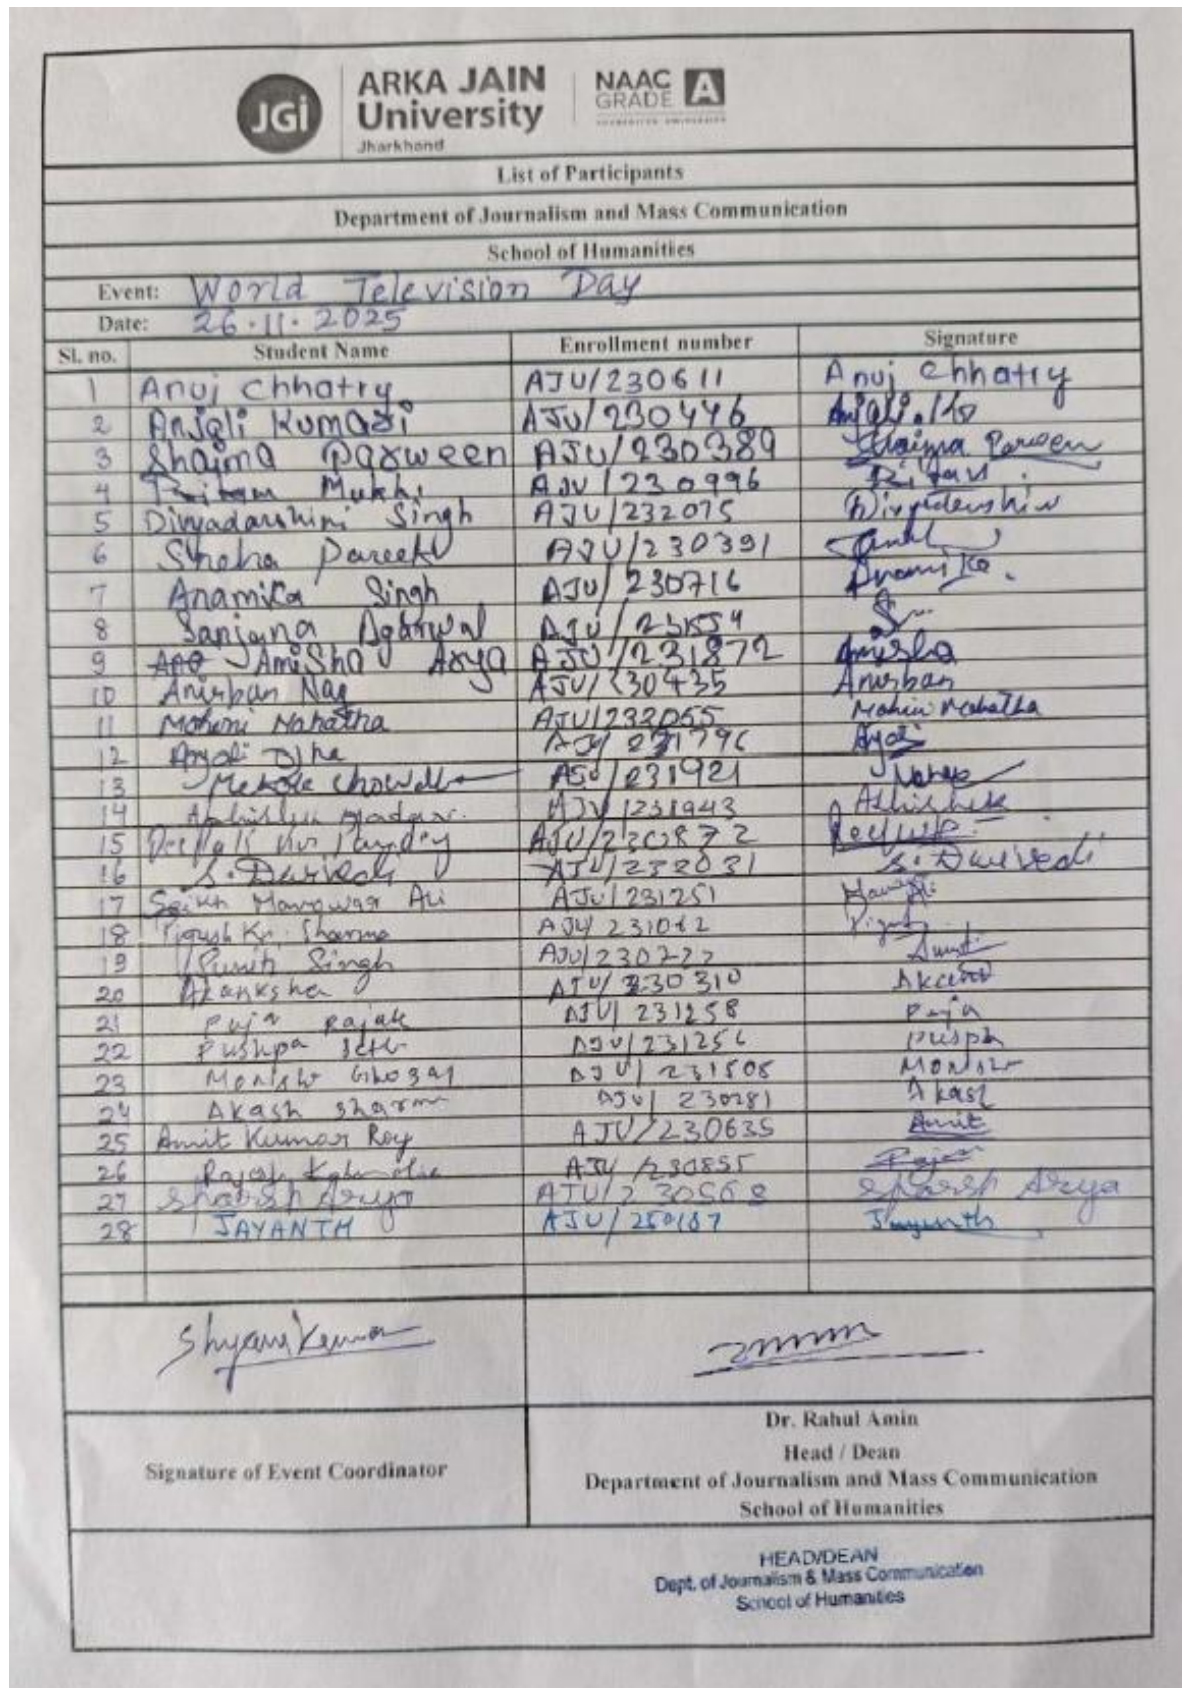 JGi
ARKA JAIN
University
Jharkhand
NAAC
GRADE A
ACCREDITED UNIVERSITY
List of Participants
Department of Journalism and Mass Communication
School of Humanities
Event: World Television Day
Date: 26.11.2025
Sl. no. Student Name Enrollment number Signature
1 Anuj Chhatry AJU/230611 Anuj Chhatry
2 Anjali Kumari AJU/230446 Anjali
3 Shaima Parween AJU/230389 Shaima Parween
4 Pritam Mukhi AJU/230996
5 Divyadarshini Singh AJU/232075
6 Sneha Pareek AJU/230391
7 Anamika Singh AJU/230716 Anamika
8 Sanjana Agarwal AJU/
9 Amisha Arya AJU/231872 Amisha
10 Anirban Nag AJU/230435 Anirban
11 Mohini Mahatha AJU/232055 Mohini Mahatha
12 Anjali Ojha AJU/231796
13 Chowdh AJU/231921
14 Abhishek AJU/231943 Abhishek
15 Kr Pandey AJU/230872
16 S. Dwivedi AJU/232031 S. Dwivedi
17 Ali AJU/231251
18 Piyush Kr. Sharma AJU/
19 Punit Singh AJU/230
20 Akanksha AJU/230310
21 Puja Rajak AJU/231258 Puja
22 Pushpa AJU/231256
23 AJU/231505
24 Akash Sharma AJU/230281 Akash
25 Amit Kumar Roy AJU/230635 Amit
26 Rajesh AJU/230855
27 Sparsh Arya AJU/230568 Sparsh Arya
28 JAYANTH AJU/250187 Jayanth
Shyam Kumar
Signature of Event Coordinator
Dr. Rahul Amin
Head / Dean
Department of Journalism and Mass Communication
School of Humanities
HEAD/DEAN
Dept. of Journalism & Mass Communication
School of Humanities